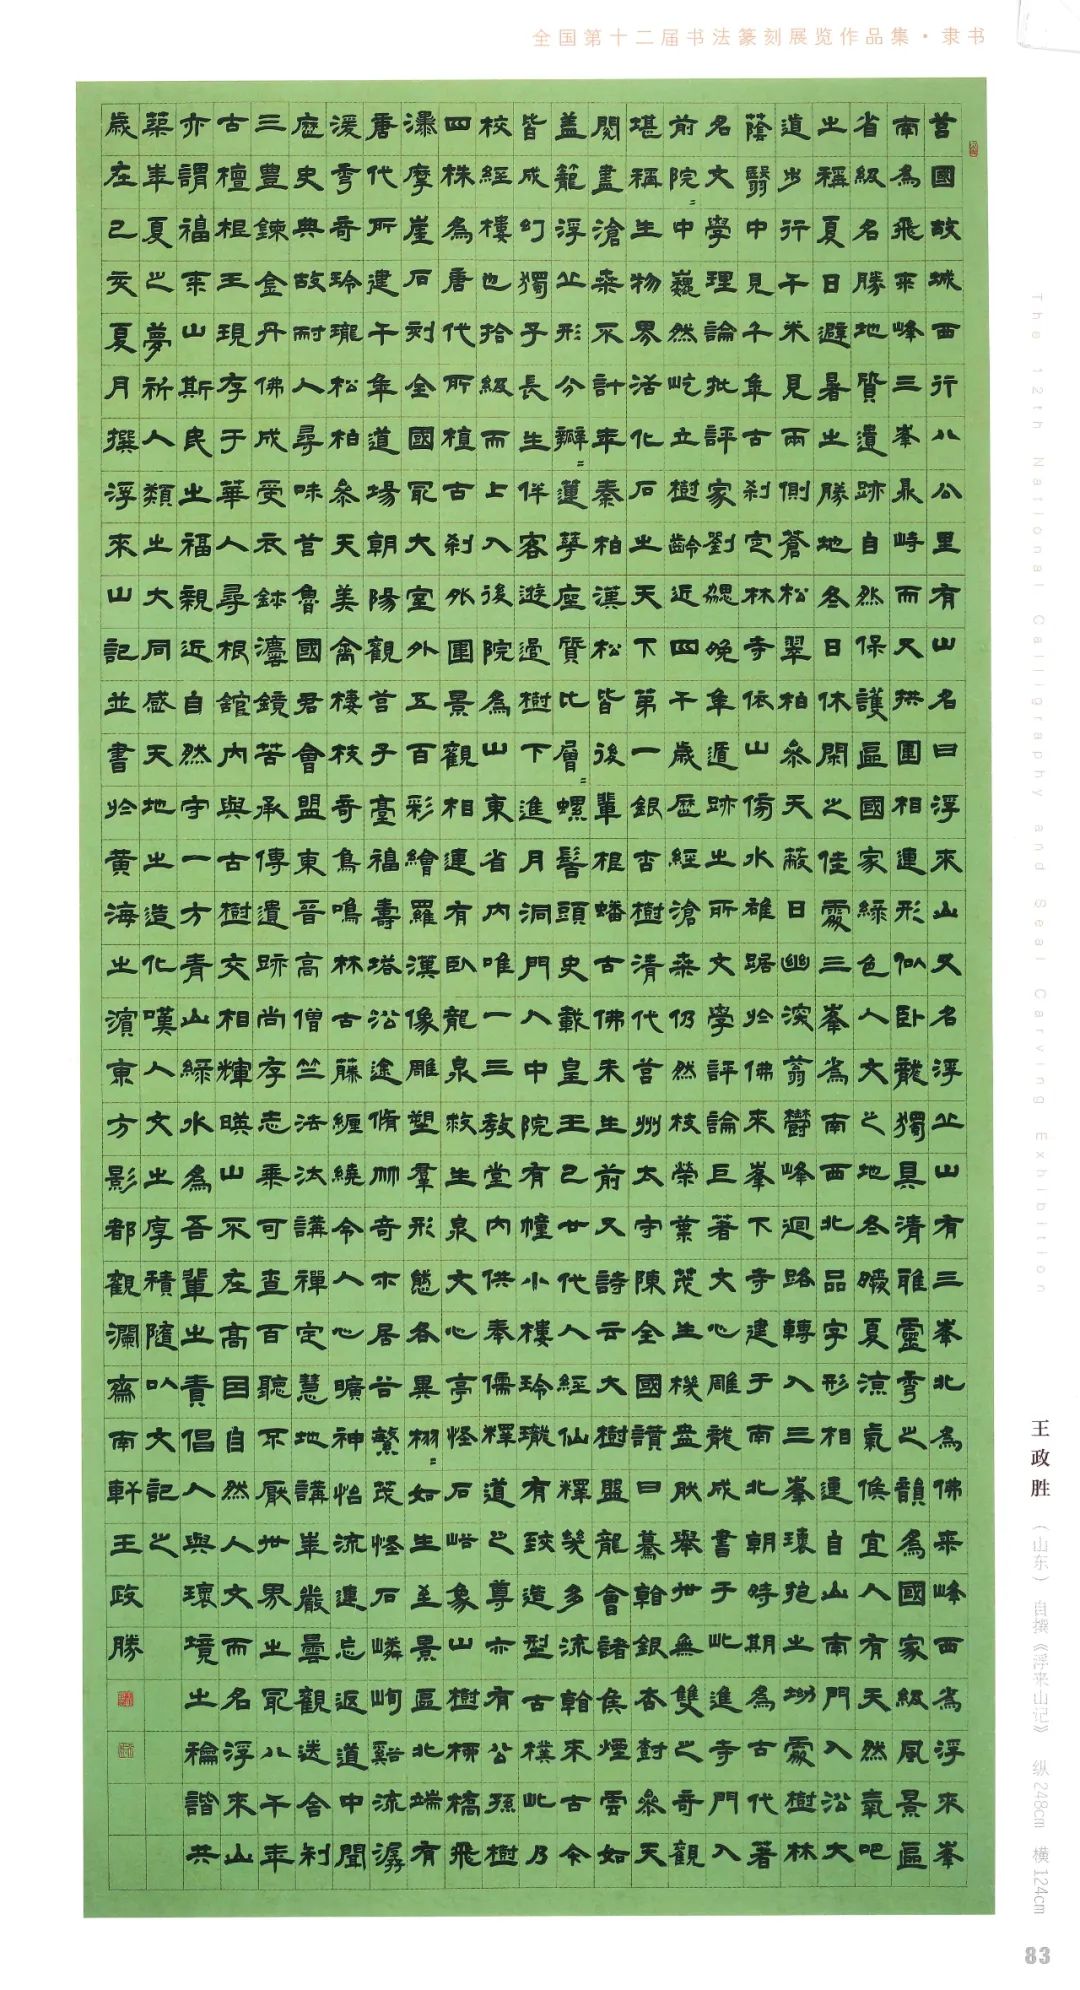 全国第十二届书法篆刻展览作品集·隶书
莒國故城西行八公里有山名曰浮來山又名浮丘山有三峯北為佛来峰西為浮來峯
南為飛来峰三峯鼎峙而又拱圍相連形似卧龍獨具清雅靈秀之韻為國家級風景區
省級名勝地質遺跡自然保護區國家綠色人文之地冬暖夏涼氣候宜人有天然氧吧
之稱夏日避暑之勝地冬日休閑之佳處三峯為南西北品字形相連自山南門入沿大
道步行千米見兩側蒼松翠柏參天蔽日幽深蓊鬱峰迴路轉入三峯環抱之坳處樹林
蔭翳中見千年古刹定林寺依山傍水雄踞於佛來峯下寺建于南北朝時期為古代著
名文學理論批評家劉勰晚年遁跡之所文學評論巨著文心雕龍成書于此進寺門入
前院〻中巍然屹立樹齡近四千歲歷經滄桑仍然枝榮葉茂生機盎然舉世無雙之奇觀
堪稱生物界活化石之天下第一銀杏樹清代莒州太守陳全國讚曰驀看銀杏樹參天
閱盡滄桑不計年秦柏漢松皆後輩根蟠古佛未生前又詩云大樹盤龍會諸侯煙雲如
盖籠浮丘形分瓣〻蓮華座質比層〻螺髻頭史載皇王已廿代人經仙釋幾多流看来古今
皆成幻獨子長生伴客遊過樹下進月洞門入中院有幢小樓玲瓏有致造型古樸此乃
校經樓也拾級而上入後院為山東省內唯一三教堂內供奉儒釋道之尊亦有公孫樹
四株為唐代所植古刹外圍景觀相連有卧龍泉救生泉文心亭怪石峪象山樹橋飛
瀑摩崖石刻全國最大室外五百彩繪羅漢像雕塑羣形態各異栩〻如生至景區北端有
唐代所建千年道場朝陽觀莒子臺福壽塔沿途脩竹奇木居谷繁茂怪石嶙峋谿流潺
湲秀奇玲瓏松柏參天美禽棲枝奇鳥鳴林古藤纏繞令人心曠神怡流連忘返道中聞
歷史典故耐人尋味莒魯國君會盟東晉高僧竺法汰講禪定慧地講華嚴曇觀送舍利
三豊鍊金丹佛成受衣鉢鏡苦承傳遺跡尚存志乘可查百聽不厭世界之最八千年
古檀根王現存于華人尋根館內與古樹交相輝暎山不在高因自然人文而名浮來山
亦謂福来山斯民之福親近自然守一方青山綠水為吾輩之責倡人與環境之龢諧共
築華夏之夢祈人類之大同感天地之造化嘆人文之厚積隨以文記之
歲在己亥夏月撰浮來山記並書於黃海之濱東方影都觀瀾齋南軒王政勝
The 12th National Calligraphy and Seal Carving Exhibition
王政胜（山东） 自撰《浮来山记》 纵248cm 横124cm
83